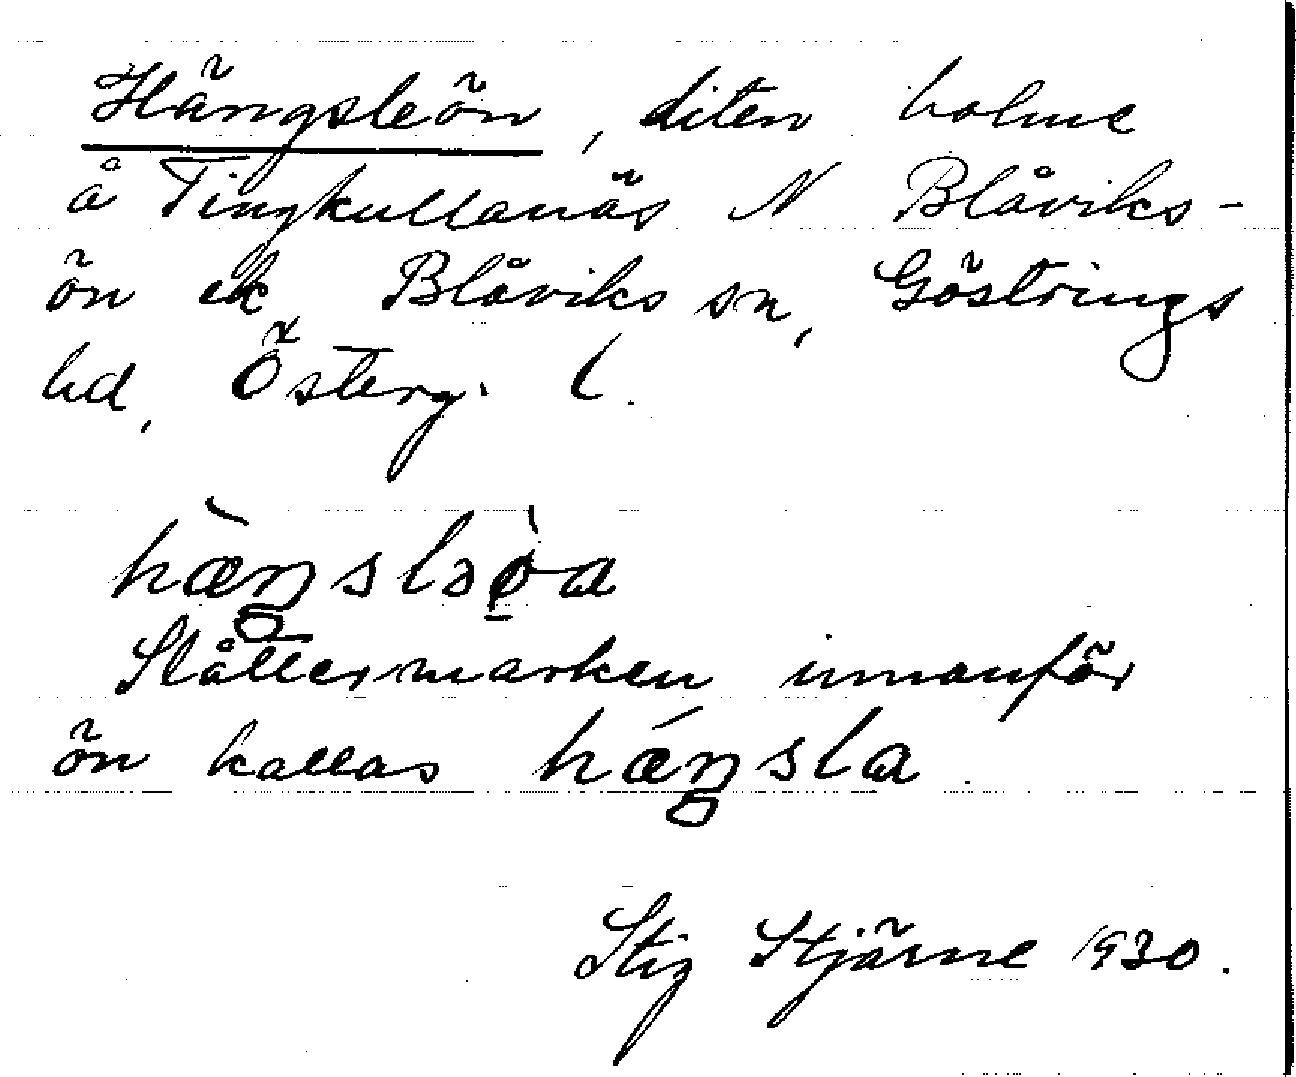 Hängsleön, liten holme
å Tingkullanäs N Blåviks-
ön ek Blåviks sn, Göstrings
hd, Österg. l.
hæŋsləøa
Slåttermarken innanför
ön kallas hæŋsla.
Stig Stjärne 1930.